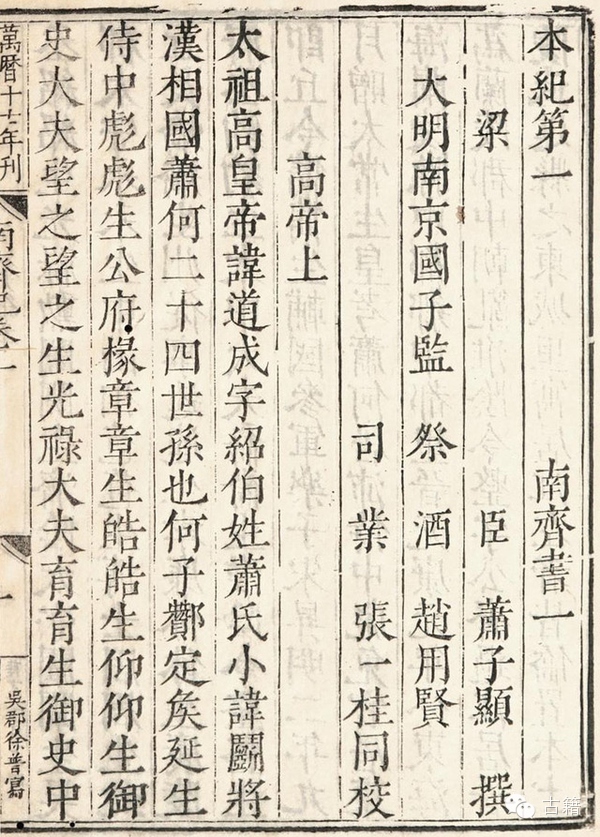 本紀第一 南齊書一
梁 臣 蕭子顯 撰
大明南京國子監 祭 酒 趙用賢
司 業 張一桂同校
高帝上
太祖高皇帝諱道成字紹伯姓蕭氏小諱鬬將
漢相國蕭何二十四世孫也何子酇定矦延生
侍中彪彪生公府掾章章生皓皓生仰仰生御
史大夫望之望之生光祿大夫育育生御史中
萬曆十七年刊
南齊紀卷一
一
吳郡徐普寫
古籍